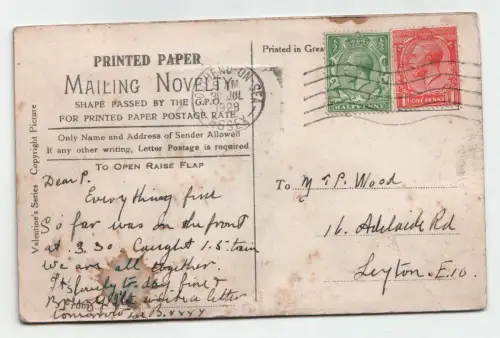 PRINTED PAPER
MAILING NOVELTY
SHAPE PASSED BY THE G.P.O.
FOR PRINTED PAPER POSTAGE RATE.
Only Name and Address of Sender Allowed
If any other writing, Letter Postage is required
TO OPEN RAISE FLAP
Valentine's Series Copyright Picture
Dear P.
Everything fine
So far was on the front
at 3.30 Caught 1.5 train
We are all together.
to-day fine &
write a letter
tomorrow
From
Printed in Grea
SOUTHEND-ON-SEA
PM
JUL
1928
ESSEX
HALFPENNY
ONE PENNY
To Mr P. Wood
16. Adelaide Rd
Leyton. E.10.